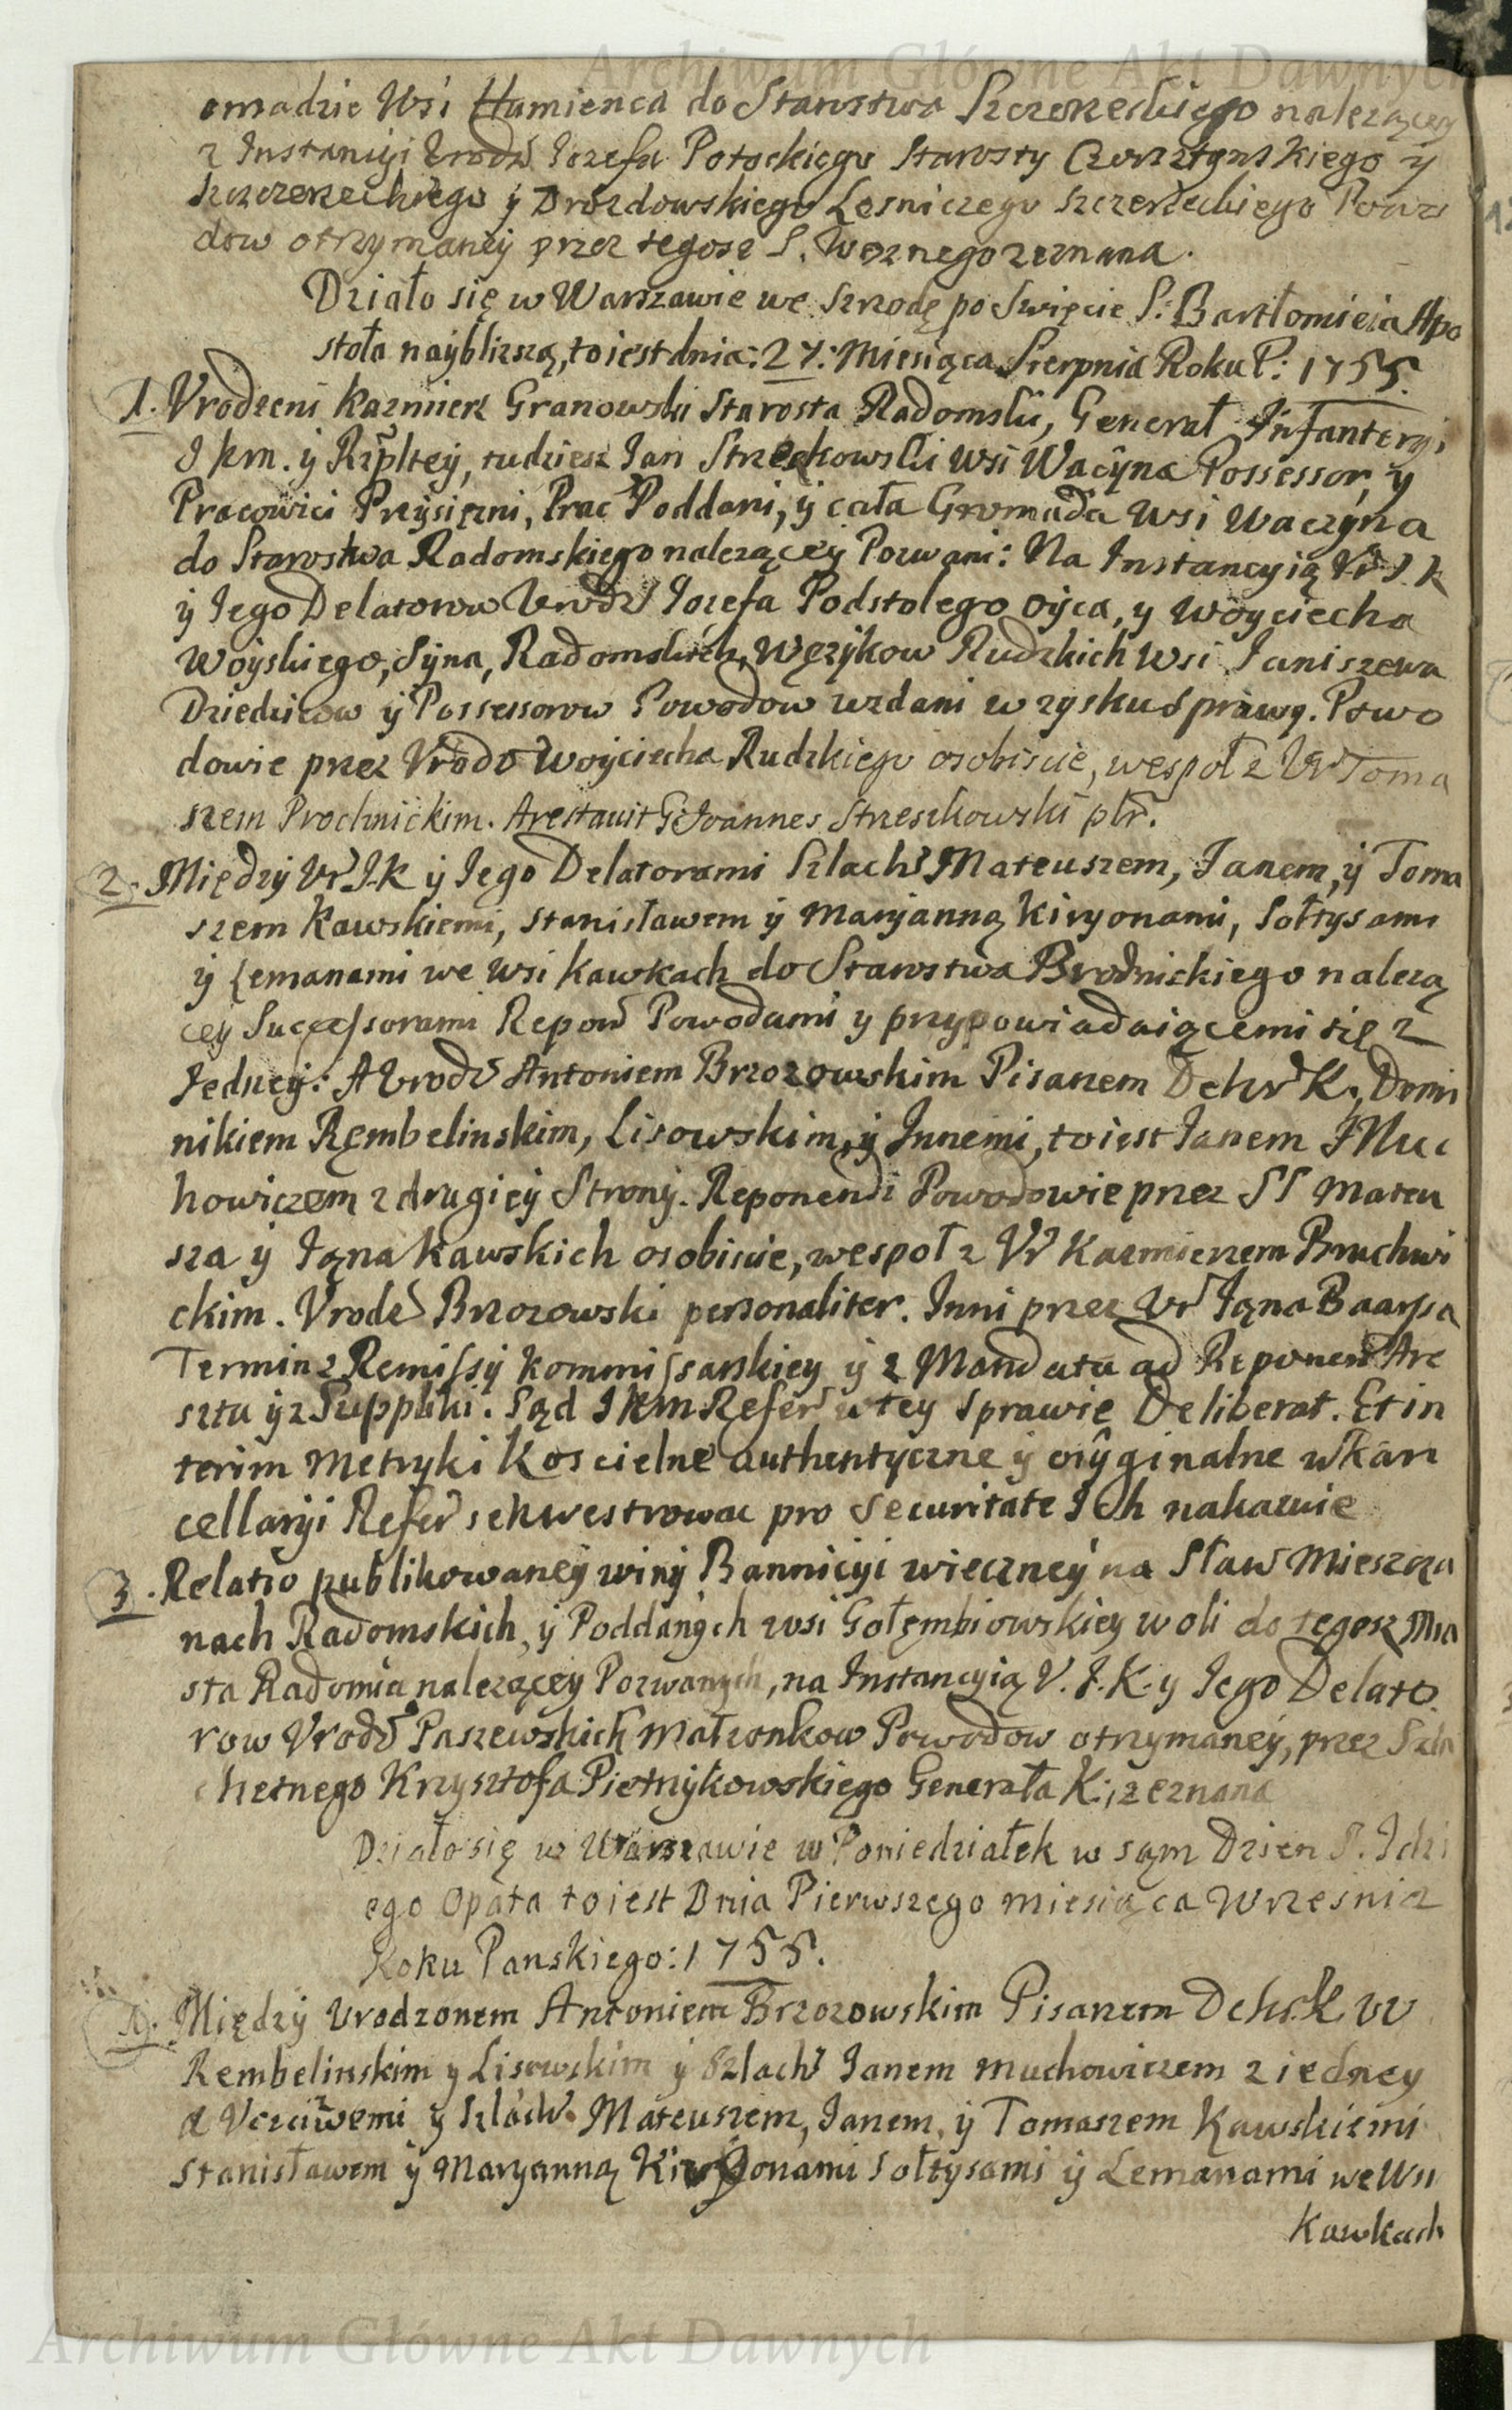 Archiwum Główne Akt Dawnych
omadzie Wsi Humienca do Starostwa Szczerzeckiego nalezącey
z Instancyi Urodz Iozefa Potockiego Starosty Czorsztynskiego y
Szczerzeckiego y Drozdowskiego Lesniczego Szczerzeckiego Powo
dow otrzymaney przez tegosz S. Woznego zeznana.
Działo się w Warszawie we Szrodę po Swięcie S: Bartłomieia Apo
stoła naybliszą, to iest dnia: 27: Miesiąca Sierpnia Roku P: 1755.
1. Vrodzeni Kazmierz Granowski Starosta Radomski, Generał Infanteryi
J km. y Rzpltey, tudziesz Jan Strzeszkowski wsi Wacyna Possessor, y
Pracowici Przysięzni, Prac Poddani, y cała Gromada wsi Waczyna
do Starostwa Radomskiego nalezącey Pozwani: Na Instancyią Ur J. K
y Iego Delatorow Urodz Iozefa Podstolego oyca, y Woyciecha
Woyskiego, Syna, Radomskich, Węzykow Rudzkich wsi Ianiszewa
Dziedzicow y Possessorow Powodow wzdani w zysku Sprawy. Powo
dowie przez Vrodz Woyciecha Rudzkiego osobiscie, wespoł z Ur Toma
szem Prochnickim. Arestavit G Joannes Strzeszkowski plr.
2. Między Ur J.K y Iego Delatorami Szlach Mateuszem, Ianem, y Toma
szem Kawskiemi, Stanisławem y Maryanną Kiryonami, Sołtysami
y Lemanami we wsi Kawkach do Starostwa Brodnickiego nalezą
cey Successorami Repow Powodami y przypowiadaiącemi się z
Iedney: A Vrodz Antoniem Brzozowskim Pisarzem Dchr K, Domi
nikiem Rembelinskim, Lisowskim, y Innemi, to iest Ianem Muc
howiczem z drugiey Strony. Reponendi Powodowie przez SS Mateu
sza y Iana Kawskich osobiscie, wespoł z Ur Kazmierzem Pruchni
ckim. Vrodz Brzozowski personaliter. Inni przez Ur Iana Baarsa
Termin z Remissy Kommissarskiey y z Mandatu ad Reponend Are
sztu y z Suppliki. Sąd J km Refer w tey Sprawie Deliberat. Et in
terim Metryki Koscielne authentyczne y oryginalne w Kan
cellaryi Refer sekwestrowac pro Securitate Ich nakazuie
3. Relatio publikowaney winy Bannicyi wieczney na Sław Mieszcza
nach Radomskich, y Poddanych wsi Gołembiowskiey woli do tegosz Mia
sta Radomia nalezącey Pozwanych, na Instancyią V. J. K. y Iego Delato
row Vrodz Paszewskich Małzonkow Powodow otrzymaney, przez Szla
chetnego Krzysztofa Pietrzykowskiego Generała K; zeznana
Działo się w Warszawie w Poniedziałek w sam Dzien S. Idzi
ego Opata to iest Dnia Pierwszego miesiąca Wrzesnia
Roku Panskiego: 1755.
Między Vrodzonem Antoniem Brzozowskim Pisarzem Dchr. K UU
Rembelinskim y Lisowskim y Szlach Ianem Muchowiczem z iedney
A Uczciwemi y Szlach Mateuszem, Ianem, y Tomaszem Kawskiemi
Stanisławem y Maryanną Kiryonami Sołtysami y Lemanami we Wsi
Kawkach
Archiwum Główne Akt Dawnych